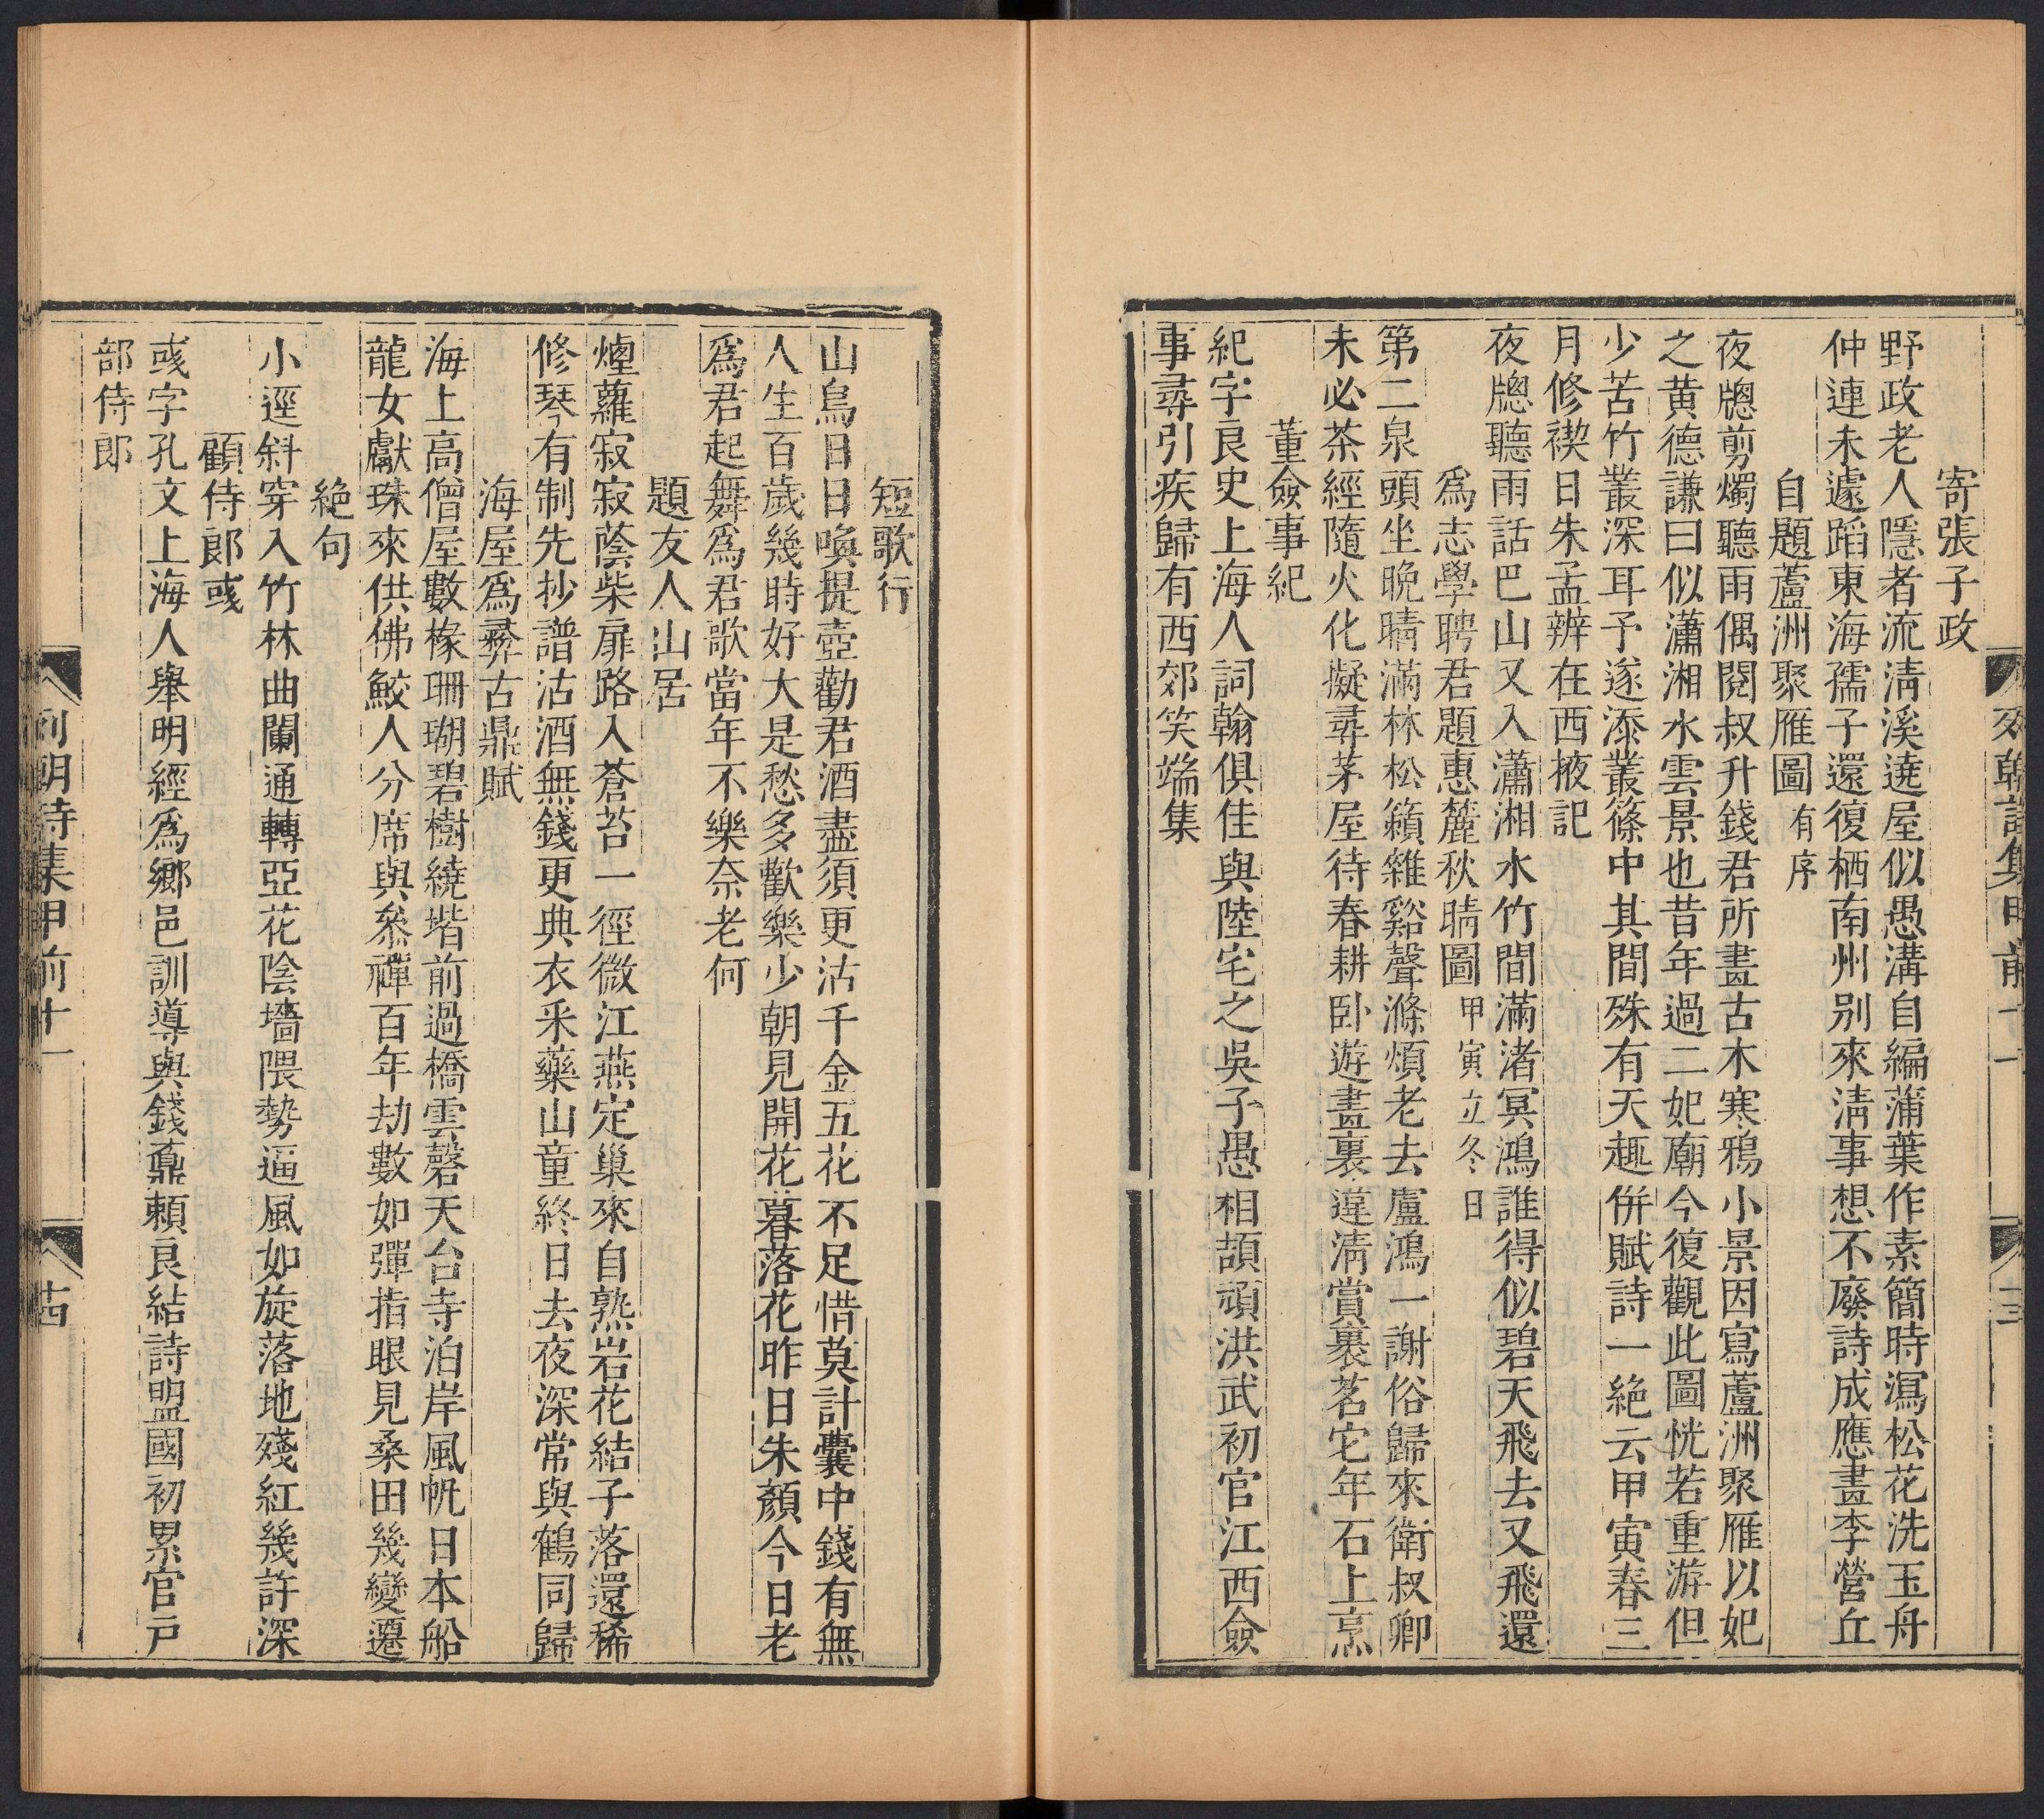 寄張子政
野政老人隱者流清溪遶屋似愚溝自編蒲葉作素簡時瀉松花洗玉舟
仲連未遽蹈東海孺子還復栖南州别來淸事想不廢詩成應畫李營丘
自題蘆洲聚雁圖有序
夜牕剪燭聽雨偶閱叔升錢君所畫古木寒鴉小景因寫蘆洲聚雁以妃
之黄德謙曰似瀟湘水雲景也昔年過二妃廟今復觀此圖恍若重游但
少苦竹叢深耳予遂添叢篠中其間殊有天趣併賦詩一絶云甲寅春三
月修禊日朱孟辨在西掖記
夜牕聽雨話巴山又入瀟湘水竹間滿渚冥鴻誰得似碧天飛去又飛還
爲志學聘君題惠麓秋晴圖甲寅立冬日
第二泉頭坐晩晴滿林松籟雜谿聲滌煩老去盧鴻一謝俗歸來衛叔卿
未必茶經隨火化擬尋茅屋待春耕卧遊畫裏違淸賞裹茗它年石上烹
董僉事紀
紀字良史上海人詞翰俱佳與陸宅之吳子愚相頡頏洪武初官江西僉
事尋引疾歸有西郊笑端集
列朝詩集甲前十一
十三
短歌行
山鳥日日喚提壺勸君酒盡須更沽千金五花不足惜莫計囊中錢有無
人生百歲幾時好大是愁多歡樂少朝見開花暮落花昨日朱顔今日老
爲君起舞爲君歌當年不樂奈老何
題友人山居
煙蘿寂寂蔭柴扉路入蒼苔一徑微江燕定巢來自熟岩花結子落還稀
修琴有制先抄譜沽酒無錢更典衣采藥山童終日去夜深常與鶴同歸
海屋爲彛古鼎賦
海上高僧屋數椽珊瑚碧樹繞堦前過橋雲磬天台寺泊岸風帆日本船
龍女獻珠來供佛鮫人分席與叅禪百年劫數如彈指眼見桑田幾變遷
絶句
小逕斜穿入竹林曲闌通轉亞花陰墻隈勢逼風如旋落地殘紅幾許深
顧侍郎彧
彧字孔文上海人舉明經爲鄉邑訓導與錢鼐賴良結詩盟國初累官戶
部侍郎
列朝詩集甲前十一
十四